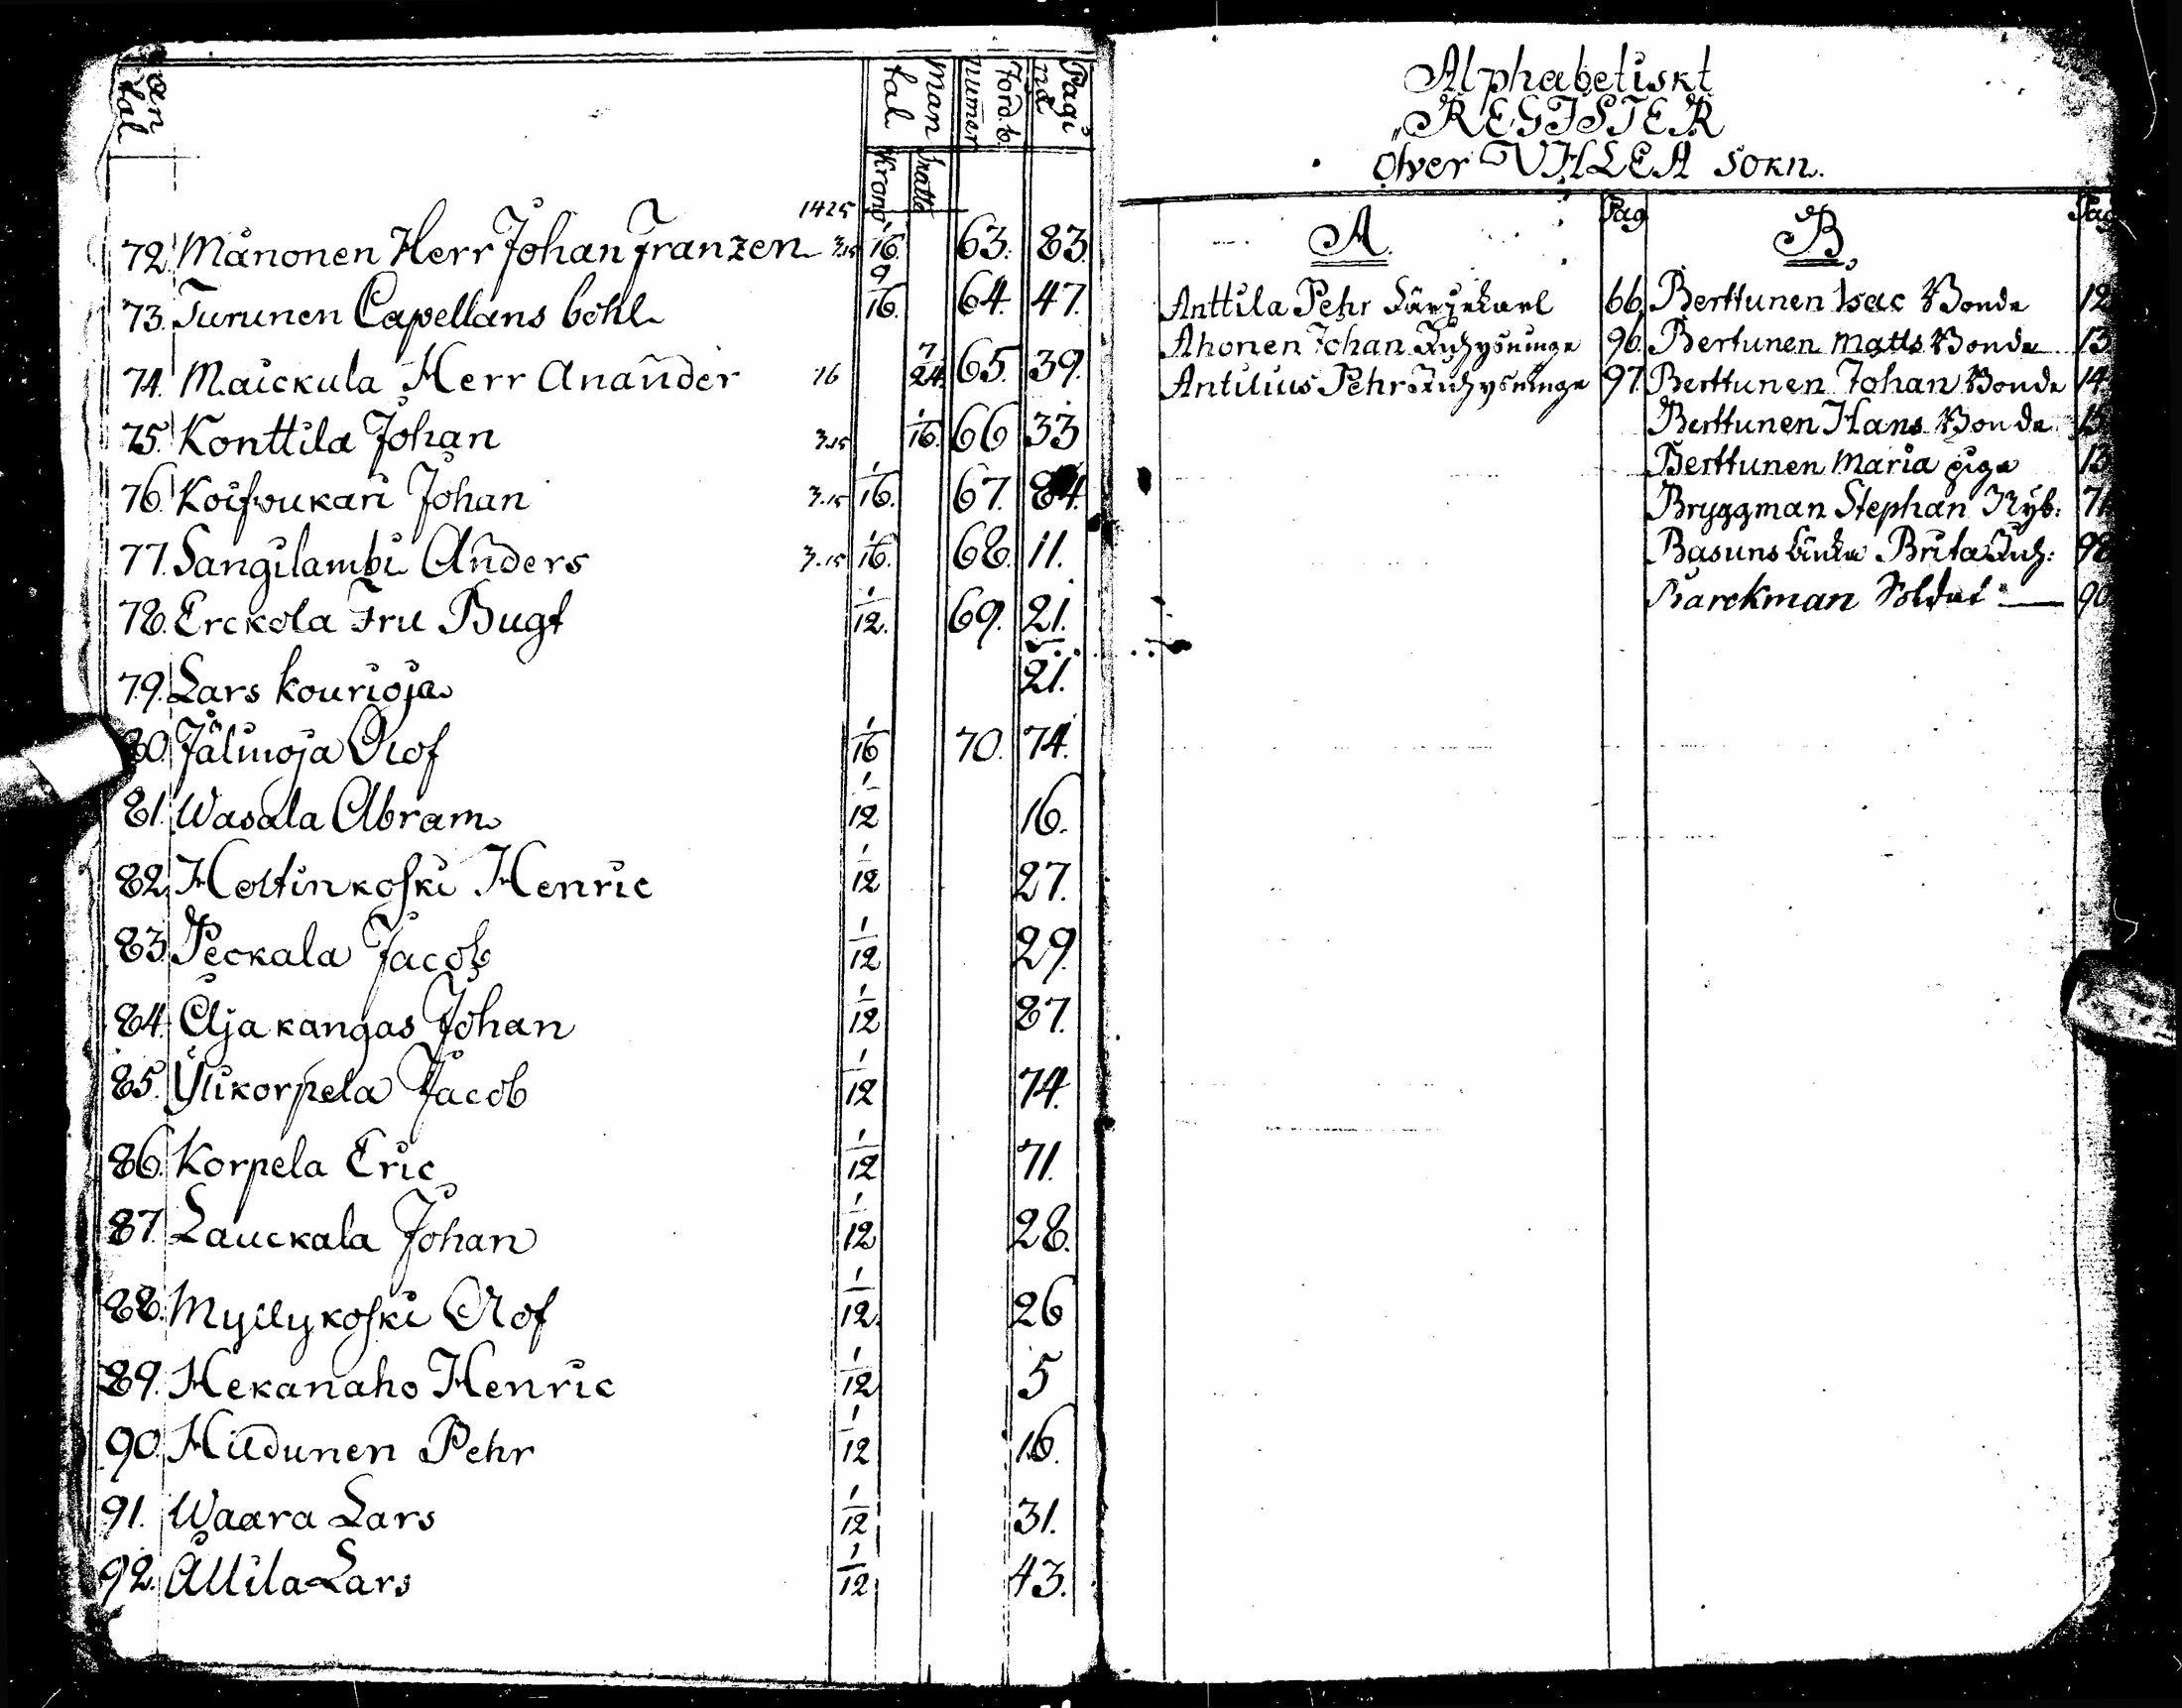 tal
Man tal
Jord.b. numer
Pagina
Krono
Skatte
1425
72. Månonen Herr Johan Franzen 3.15 1/16. 63. 83.
73. Turunen Capellans böhl 9/16. 64. 47.
74. Maickula Herr Anander 16 7/24. 65. 39.
75. Konttila Johan 3.15 1/16. 66 33
76. Koifwukari Johan 3.15 1/16. 67. 84.
77. Sangilambi Anders 3.15 1/16. 68. 11.
78. Erckola Fru Bugt 1/12. 69. 21.
79. Lars kourioja 21.
80. Jälinoja Olof 1/16 70. 74.
81. Wasala Abram 1/12 16.
82. Holtinkoski Henric 1/12 27.
83. Peckala Jacob 1/12 29.
84. Ajakangas Johan 1/12 87.
85. Ylikorpela Jacob 1/12 74.
86. Korpela Eric 1/12 71.
87. Lauckala Johan 1/12 28.
88. Myilykoski Olof 1/12. 26
89. Hekanaho Henric 1/12 5
90. Hudunen Pehr 1/12 16.
91. Waara Lars 1/12 31.
92. Attila Lars 1/12 43.
Alphabetiskt
REGISTER
öfver UHLEA sokn.
A. Pag
Anttila Pehr 66.
Ahonen Johan 96.
Antilius Pehr 97.
B. Pag
Berttunen Isac Bonde 12
Bertunen Matts Bonde 13
Berttunen Johan Bonde 14
Berttunen Hans Bonde 15
Berttunen Maria piga 13
Bryggman Stephan Nyb. 71
Basuns Enka Brita 98
Barckman Soldat 90